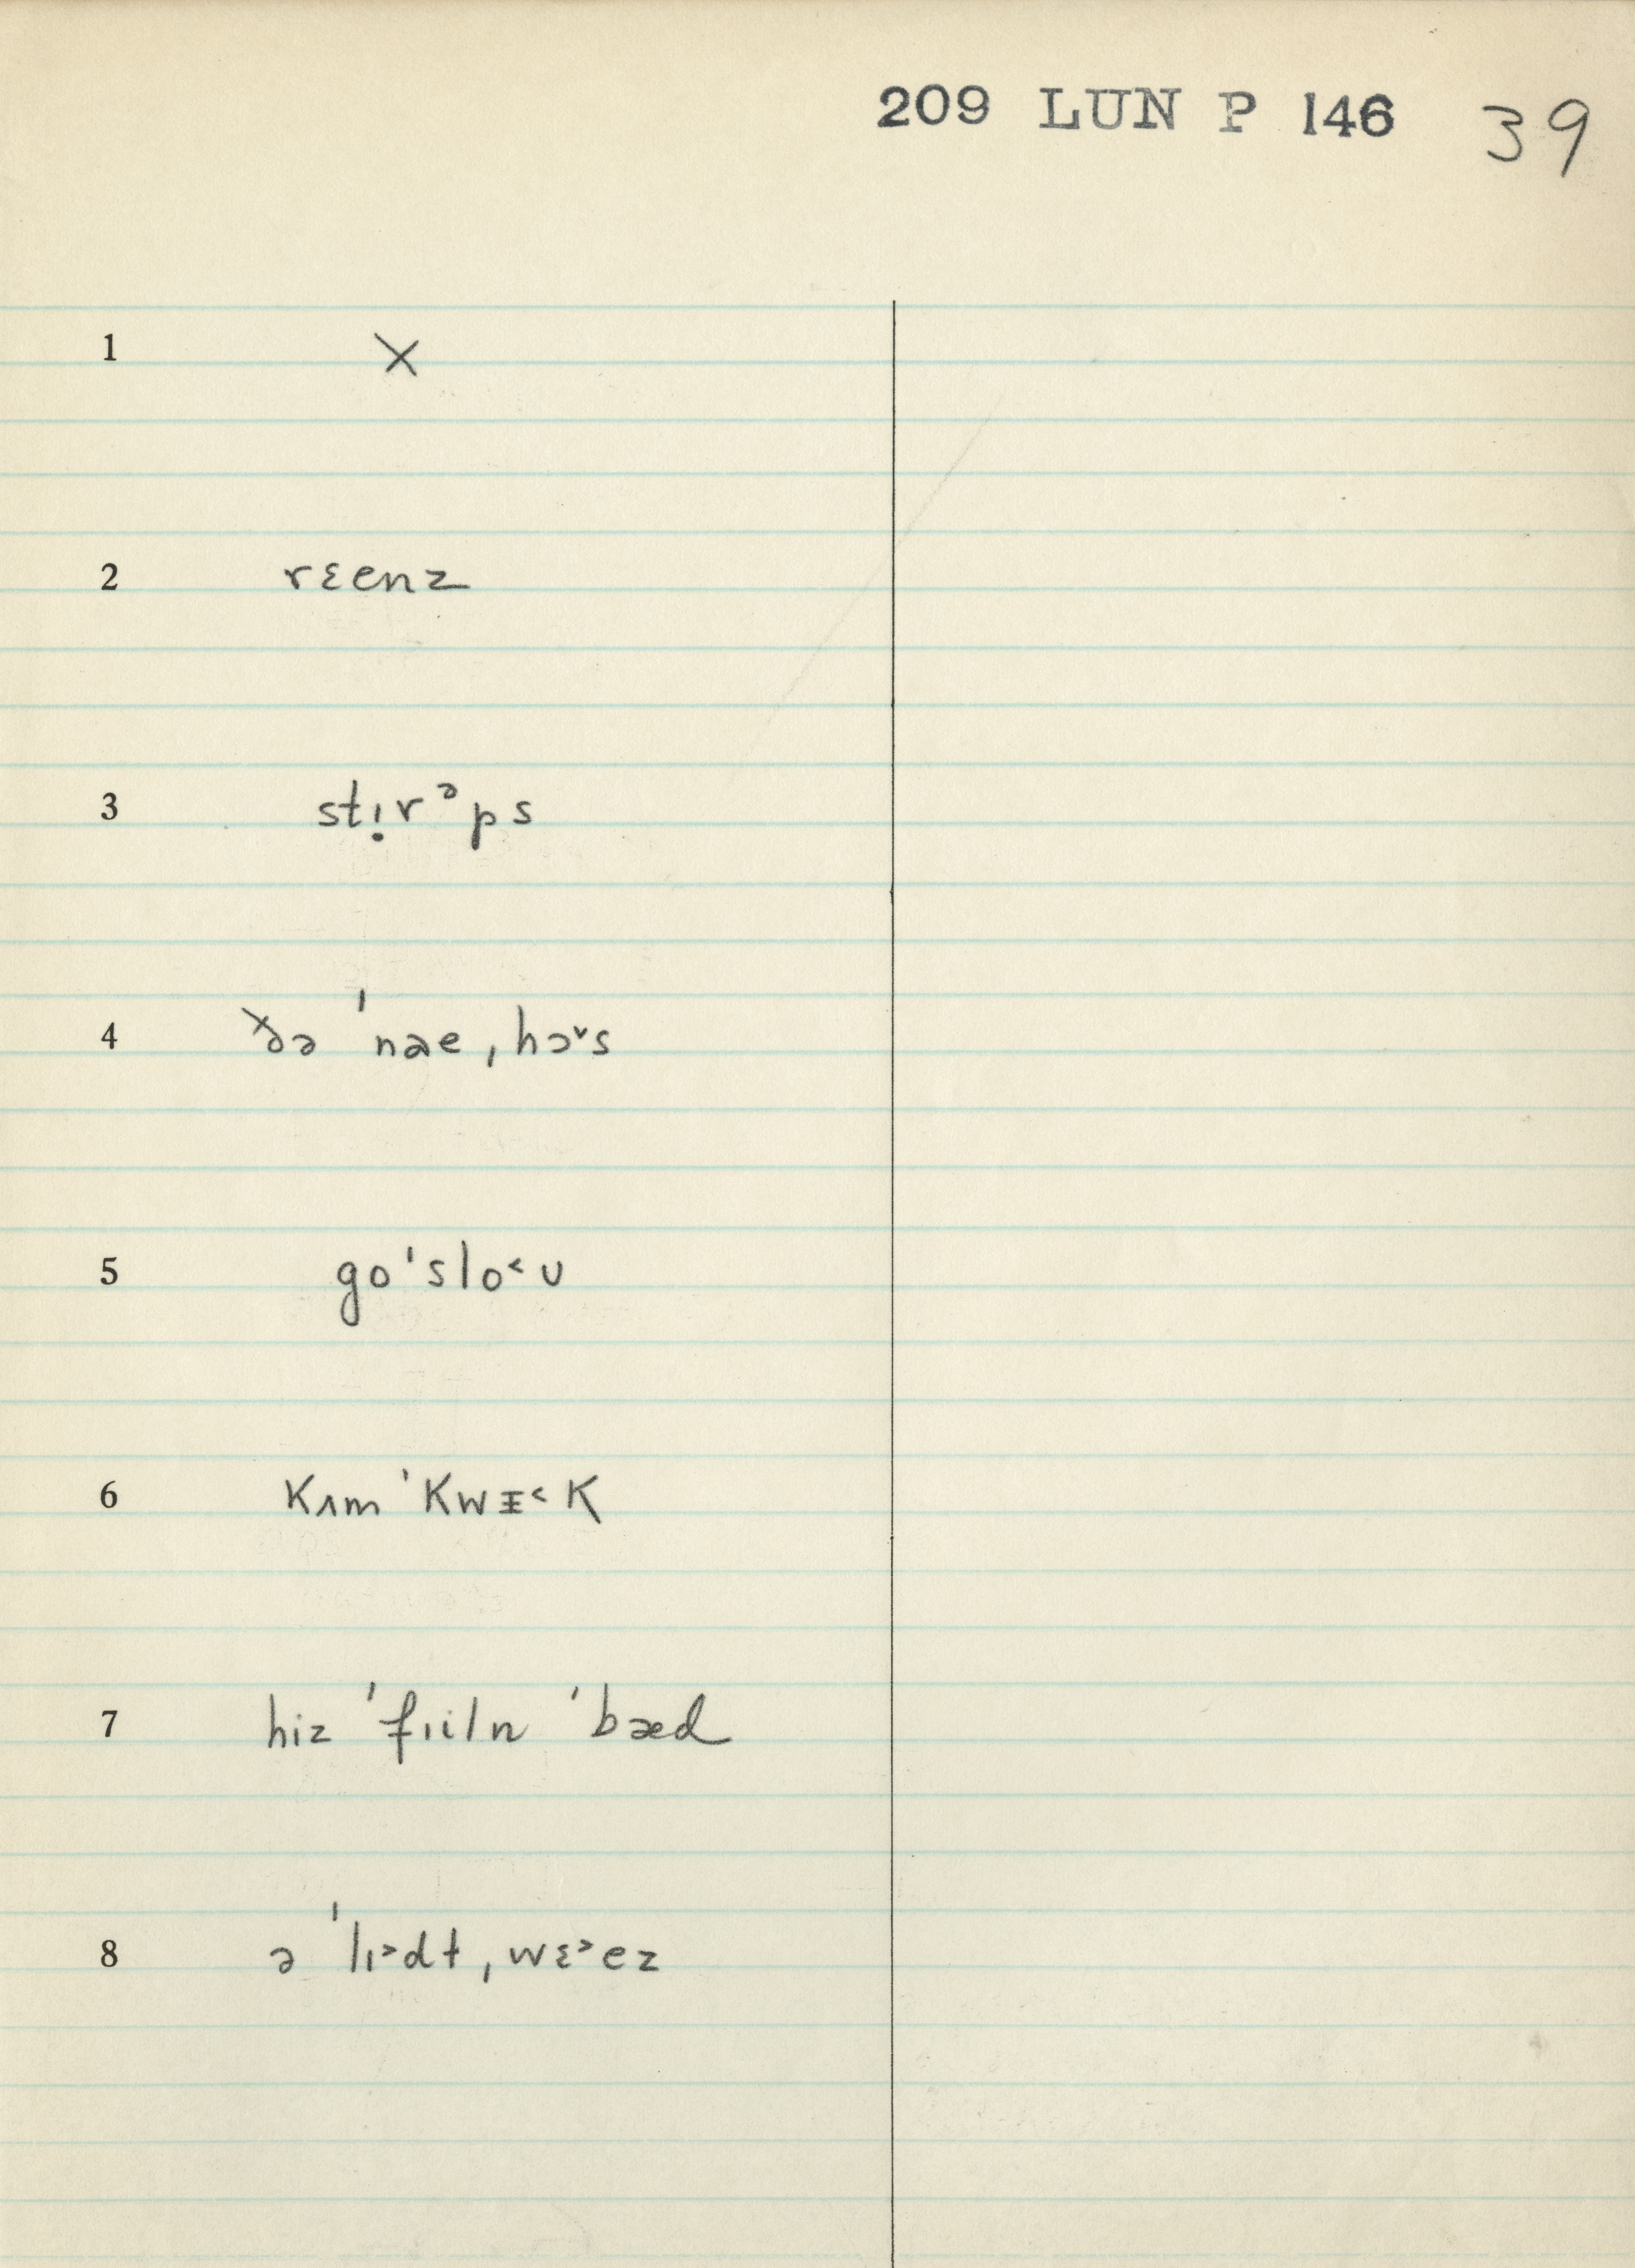 209 LUN P 146 39
1 X
2 rɛenz
3 stı̣rᵊps
4 ðə ˈnæe ˌhɔ˅s
5 goˈslo˂ʊ
6 kʌmˈkwᵻ˂k
7 hiz ˈfɪiln ˈbæd
8 ə ˈlɪ˃dt ˌwɛ˃ez